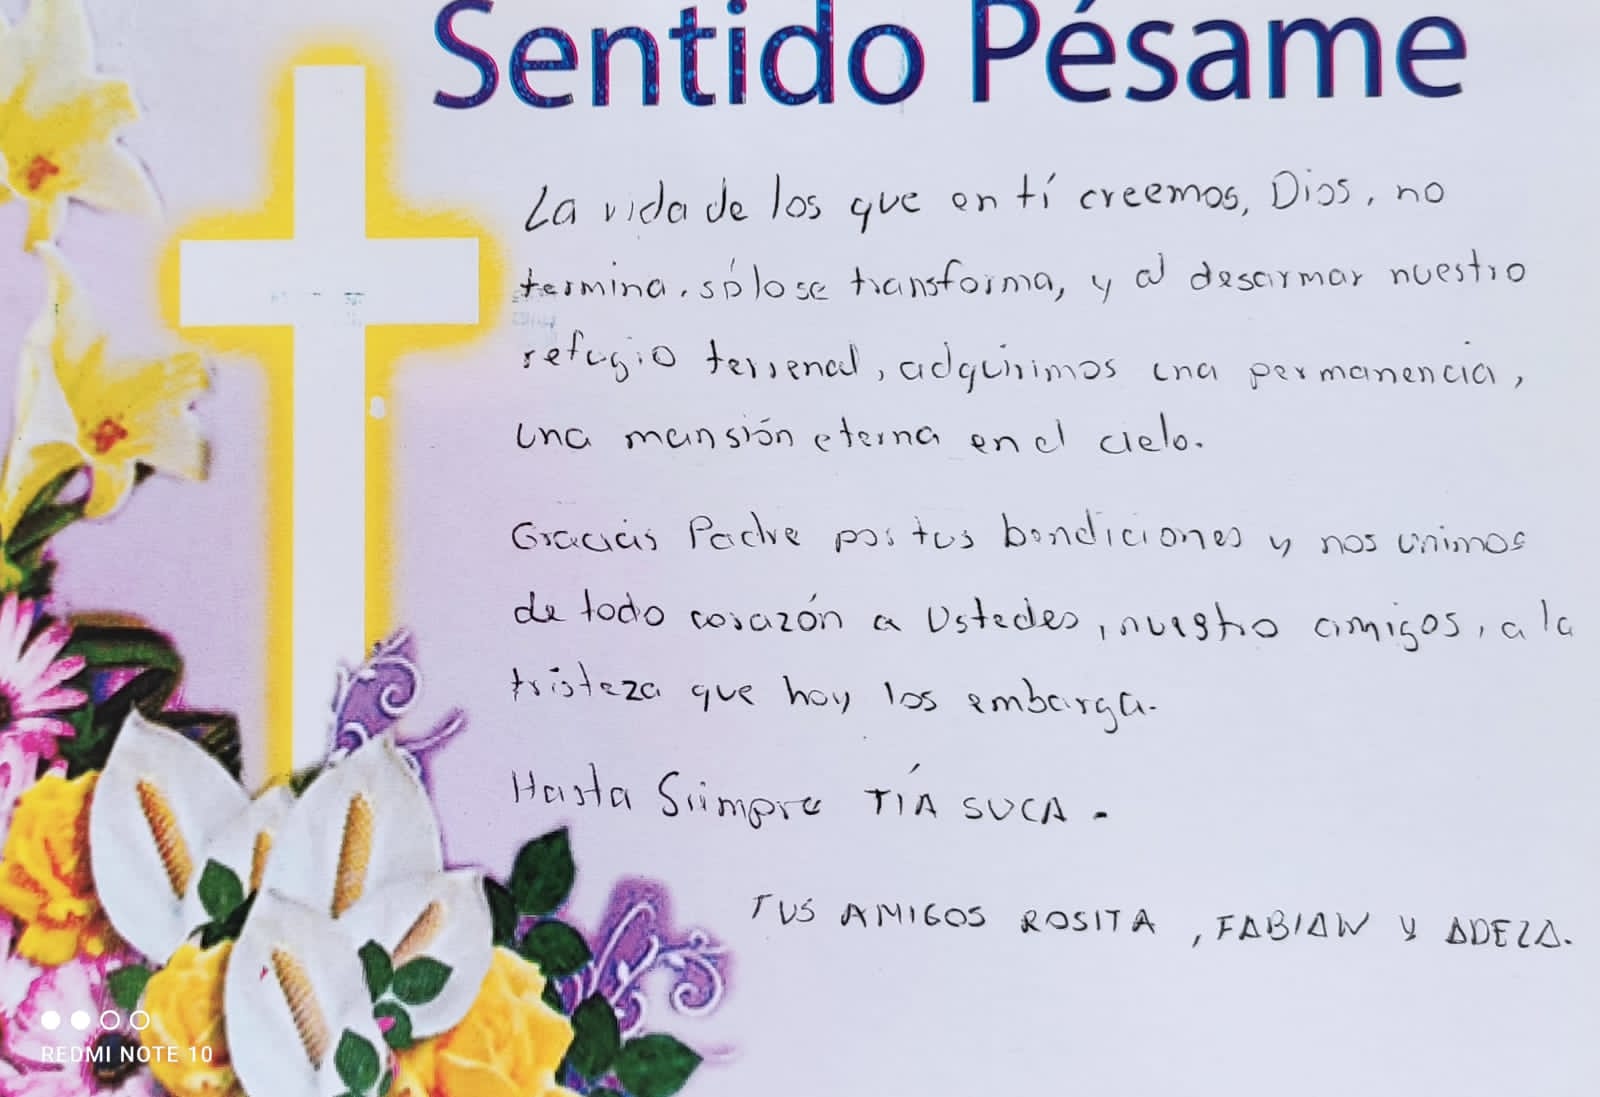 Sentido Pésame
La vida de los que en tí creemos, Dios, no
termina, sólo se transforma, y al desarmar nuestro
refugio terrenal, adquirimos una permanencia,
una mansión eterna en el cielo.
Gracias Padre por tus bendiciones y nos unimos
de todo corazón a Ustedes, nuestro amigos, a la
tristeza que hoy los embarga.
Hasta Siimpre TÍA SUCA.
TUS AMIGOS ROSITA, FABIAN Y ADELA.
REDMI NOTE 10